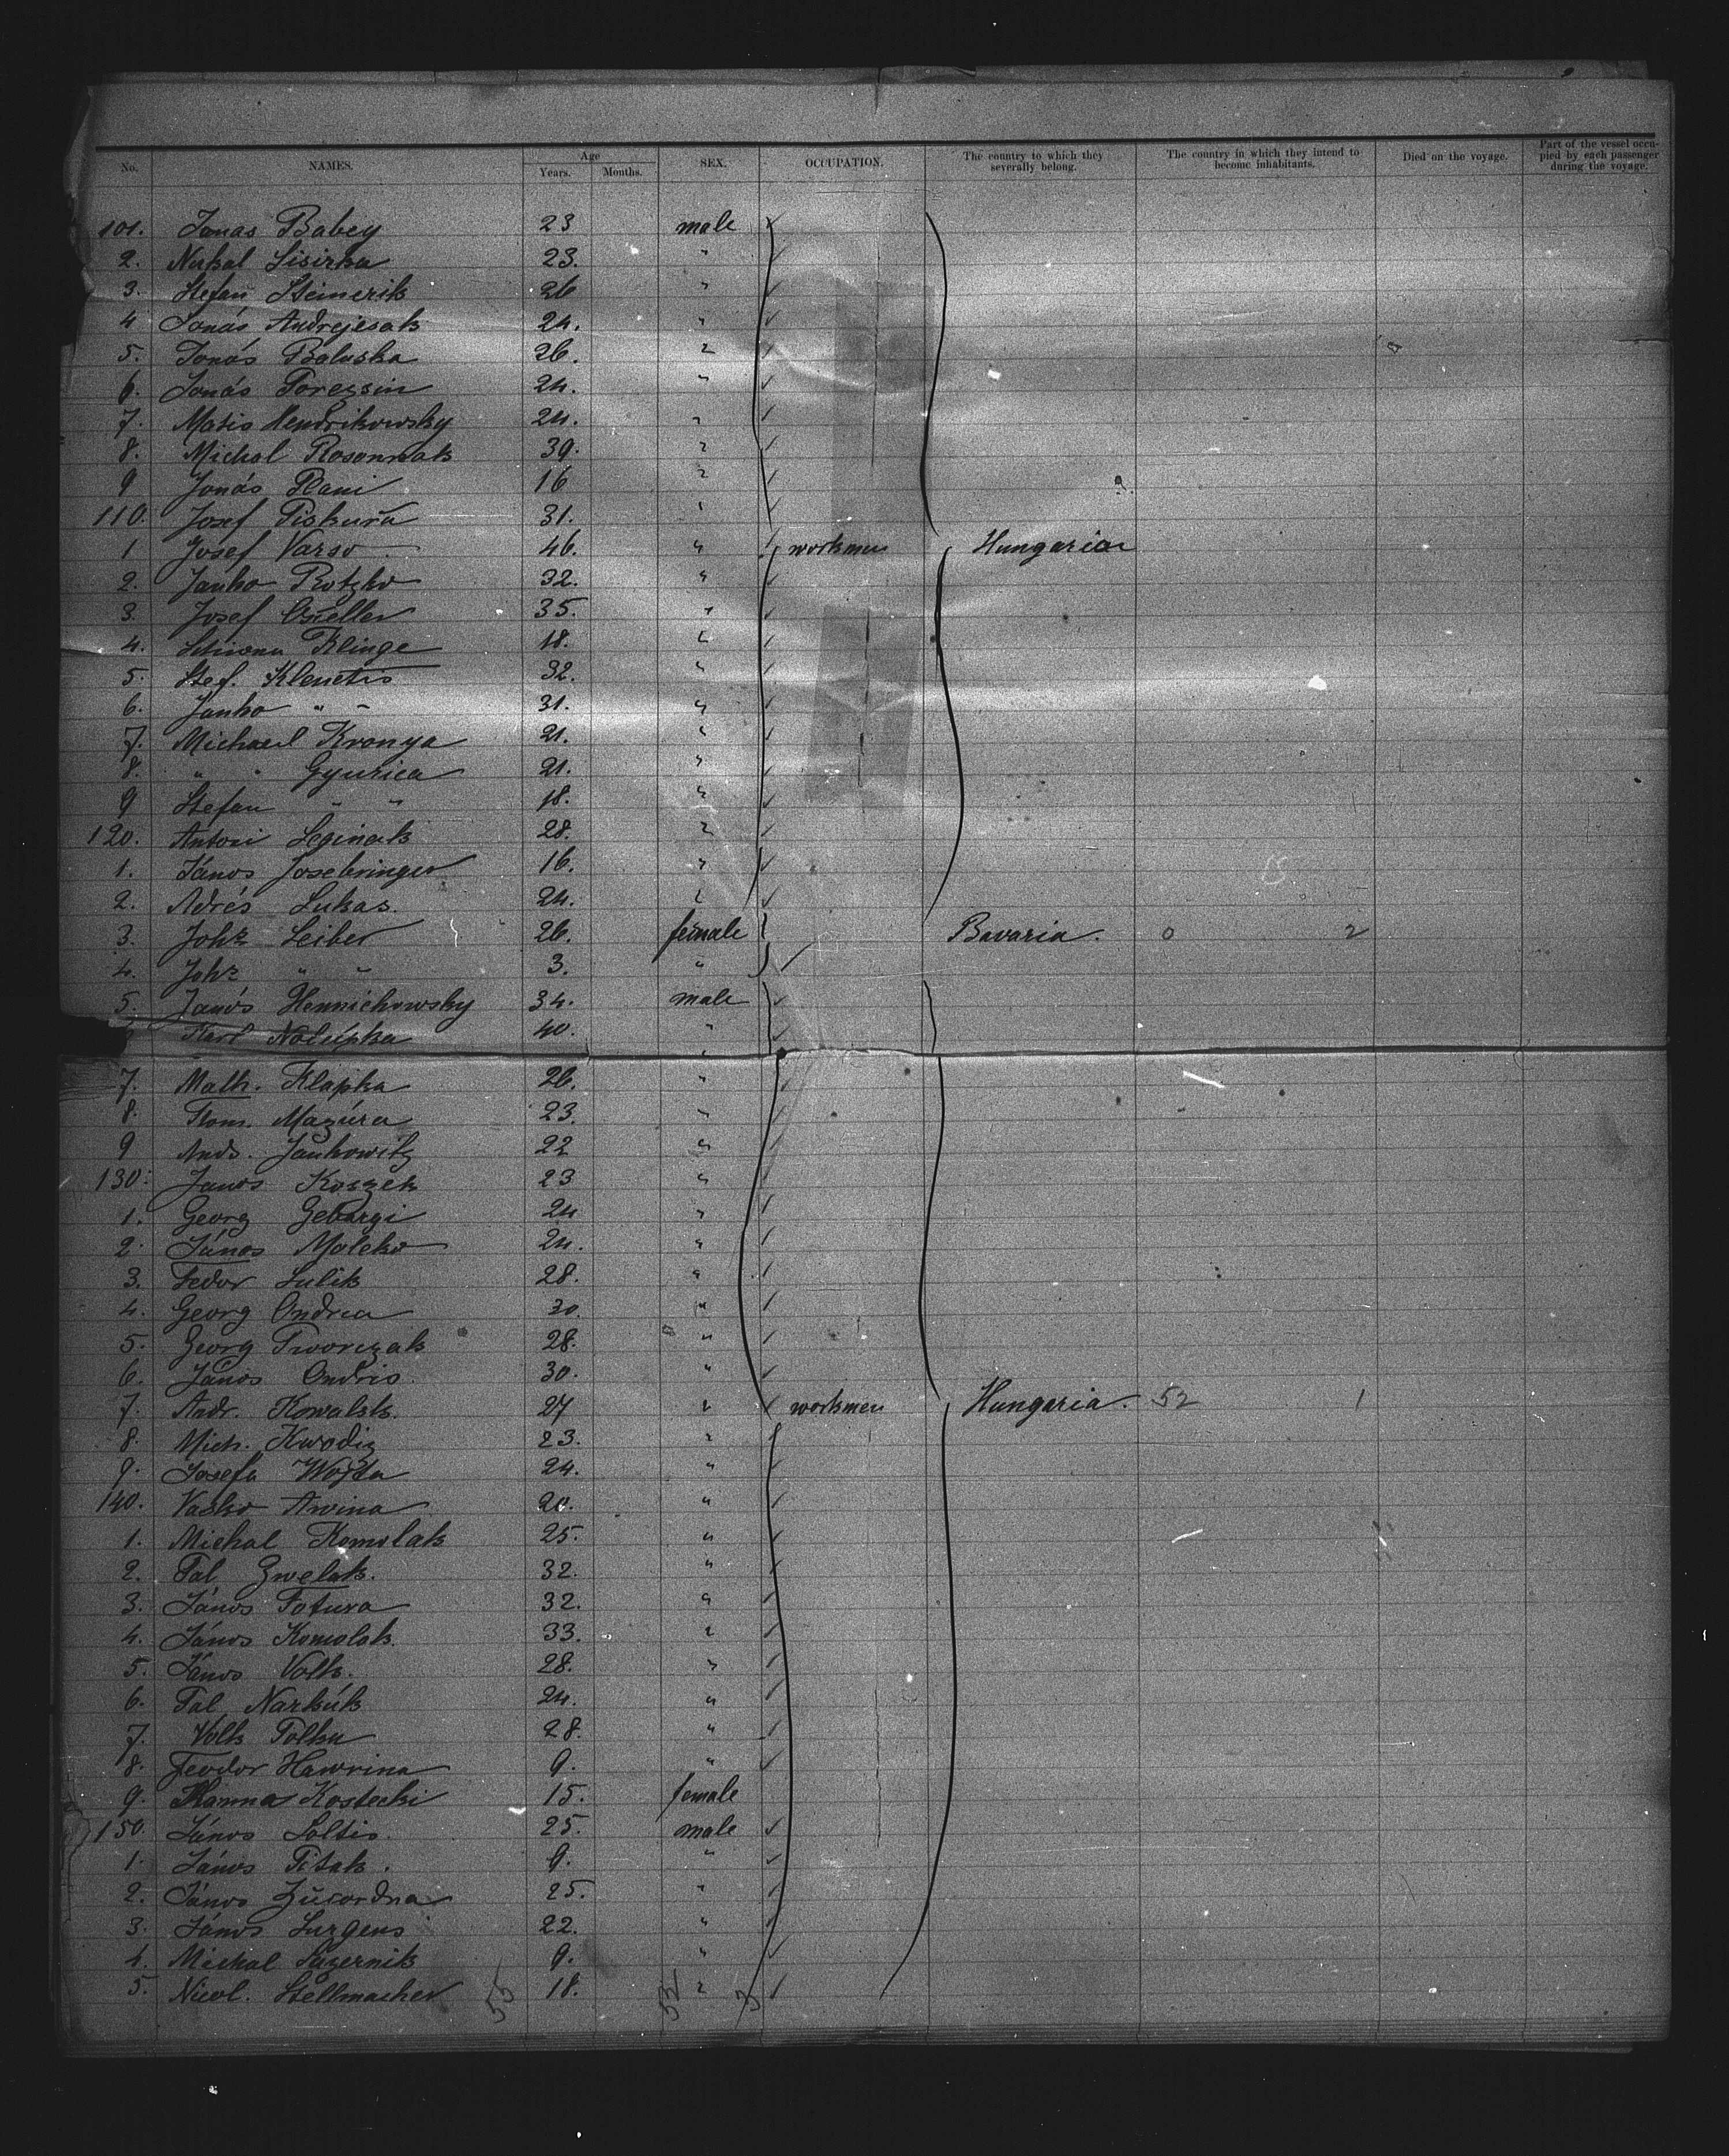 No. NAMES. Age Years. Months. SEX. OCCUPATION. The country to which they severally belong. The country in which they intend to become inhabitants. Died on the voyage. Part of the vessel occupied by each passenger during the voyage.
101. Jonas Babey 23 male
2. Lisirka 23. "
3. Stefan Steinerik 26 "
4 Jonás Andrejesak 24. "
5. Jonás Baluska 26. "
6. Jonás Torezsin 24. "
7. Matis Hendrikowsky 24. "
8. Michal Rosonnak 39. "
9 Jonás Plani 16 "
110. Josef Piskura 31. "
1 Josef Varso 46. " workmen Hungaria
2. Janko Rotzko 32. "
3. Josef 35. "
4. Klinge 18. "
5. Stef. Klenetis 32. "
6. Janko " " 31. "
7. Michael Kronya 21. "
8. " " Gyurica 21. "
9 Stefan " " 18. "
120. Antoni Leginak 28. "
1. János Josebringer 16. "
2. Adrés Lukas. 24. "
3. Johs Leiber 26. female Bavaria. 0 2
4. Johs " " 3. "
5. Janós Hennichowsky 34. male
Karl Nolepka 40. "
7. Math. Klapka 26. "
8. Tom. Mazúra 23. "
9 Andr. Jankowitz 22 "
130. Janos Koszek 23 "
1. Georg Gebargi 24 "
2. János Maleko 24. "
3. Fedor Lulik 28. "
4. Georg Ondrea 30. "
5. Georg Tworczak 28. "
6. János Ondris. 30. "
7. Andr. Kowalsk. 27 " workmen Hungaria. 52 1
8. Mich. Kwodiz 23. "
9. Josefa Wojta 24. "
140. Vasko Awina 20. "
1. Michal Komolak 25. "
2. Pal Zwelak. 32. "
3. János Totura 32. "
4. János Komolak. 33. "
5. János Volk. 28. "
6. Pal Narkúk 24. "
7. Volk Polku 28. "
8. Feodor Hawrina 9. "
9. Hanna Kostecki 15. female
150. János Soltis. 25. male
1. János Pitak. 9. "
2. János 25. "
3. János Lurgens 22. "
4. Michal Lazernik 9. "
5. Nicol. Stellmacher 18. "
55 52 3